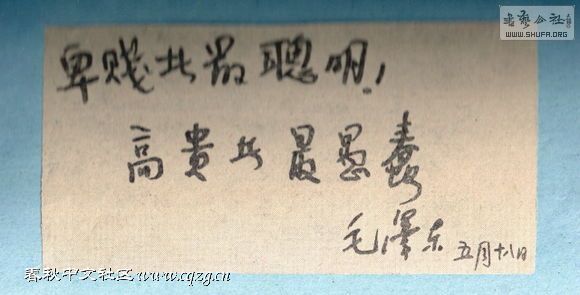 書藝公社
WWW.SHUFA.ORG
卑賤者最聰明!
高貴者最愚蠢
毛澤东 五月十八日
春秋中文社区 www.cqzg.cn